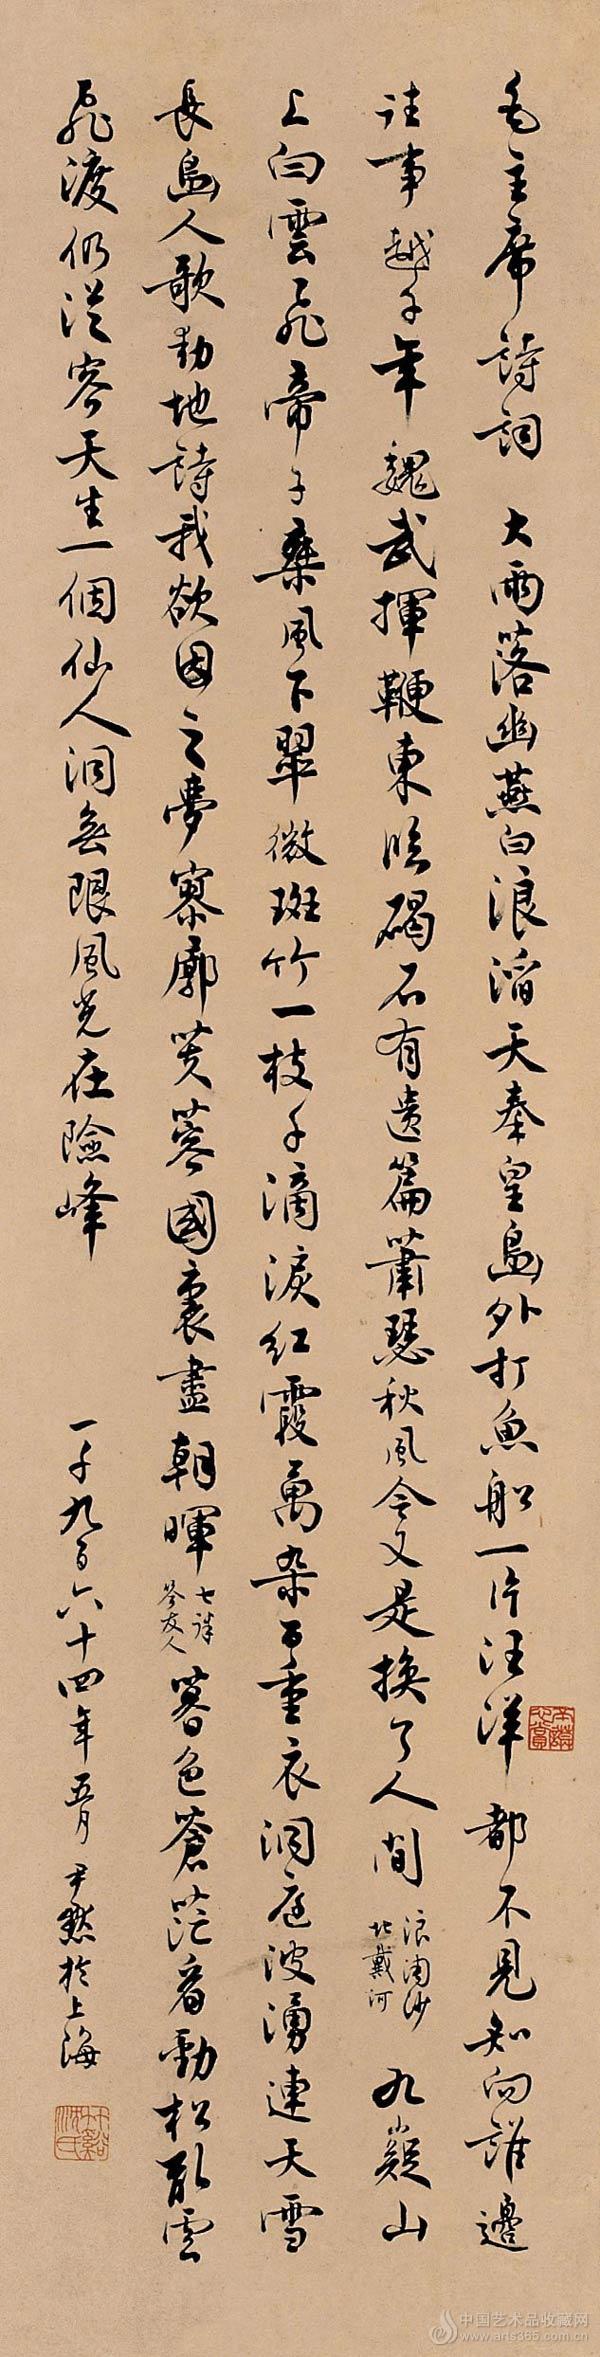 毛主席詩詞 大雨落幽燕白浪滔天秦皇島外打魚船一片汪洋都不見知向誰邊
往事越千年魏武揮鞭東臨碣石有遺篇蕭瑟秋風今又是換了人間 浪淘沙 北戴河 九嶷山
上白雲飛帝子乘風下翠微斑竹一枝千滴淚紅霞萬朵百重衣洞庭波湧連天雪
長島人歌動地詩我欲因之夢寥廓芙蓉國裏盡朝暉 七律 答友人 暮色蒼茫看勁松亂雲
飛渡仍從容天生一個仙人洞無限風光在險峰 一千九百六十四年五月尹默於上海
竹谿沈氏
中国艺术品收藏网
www.arts365.com.cn